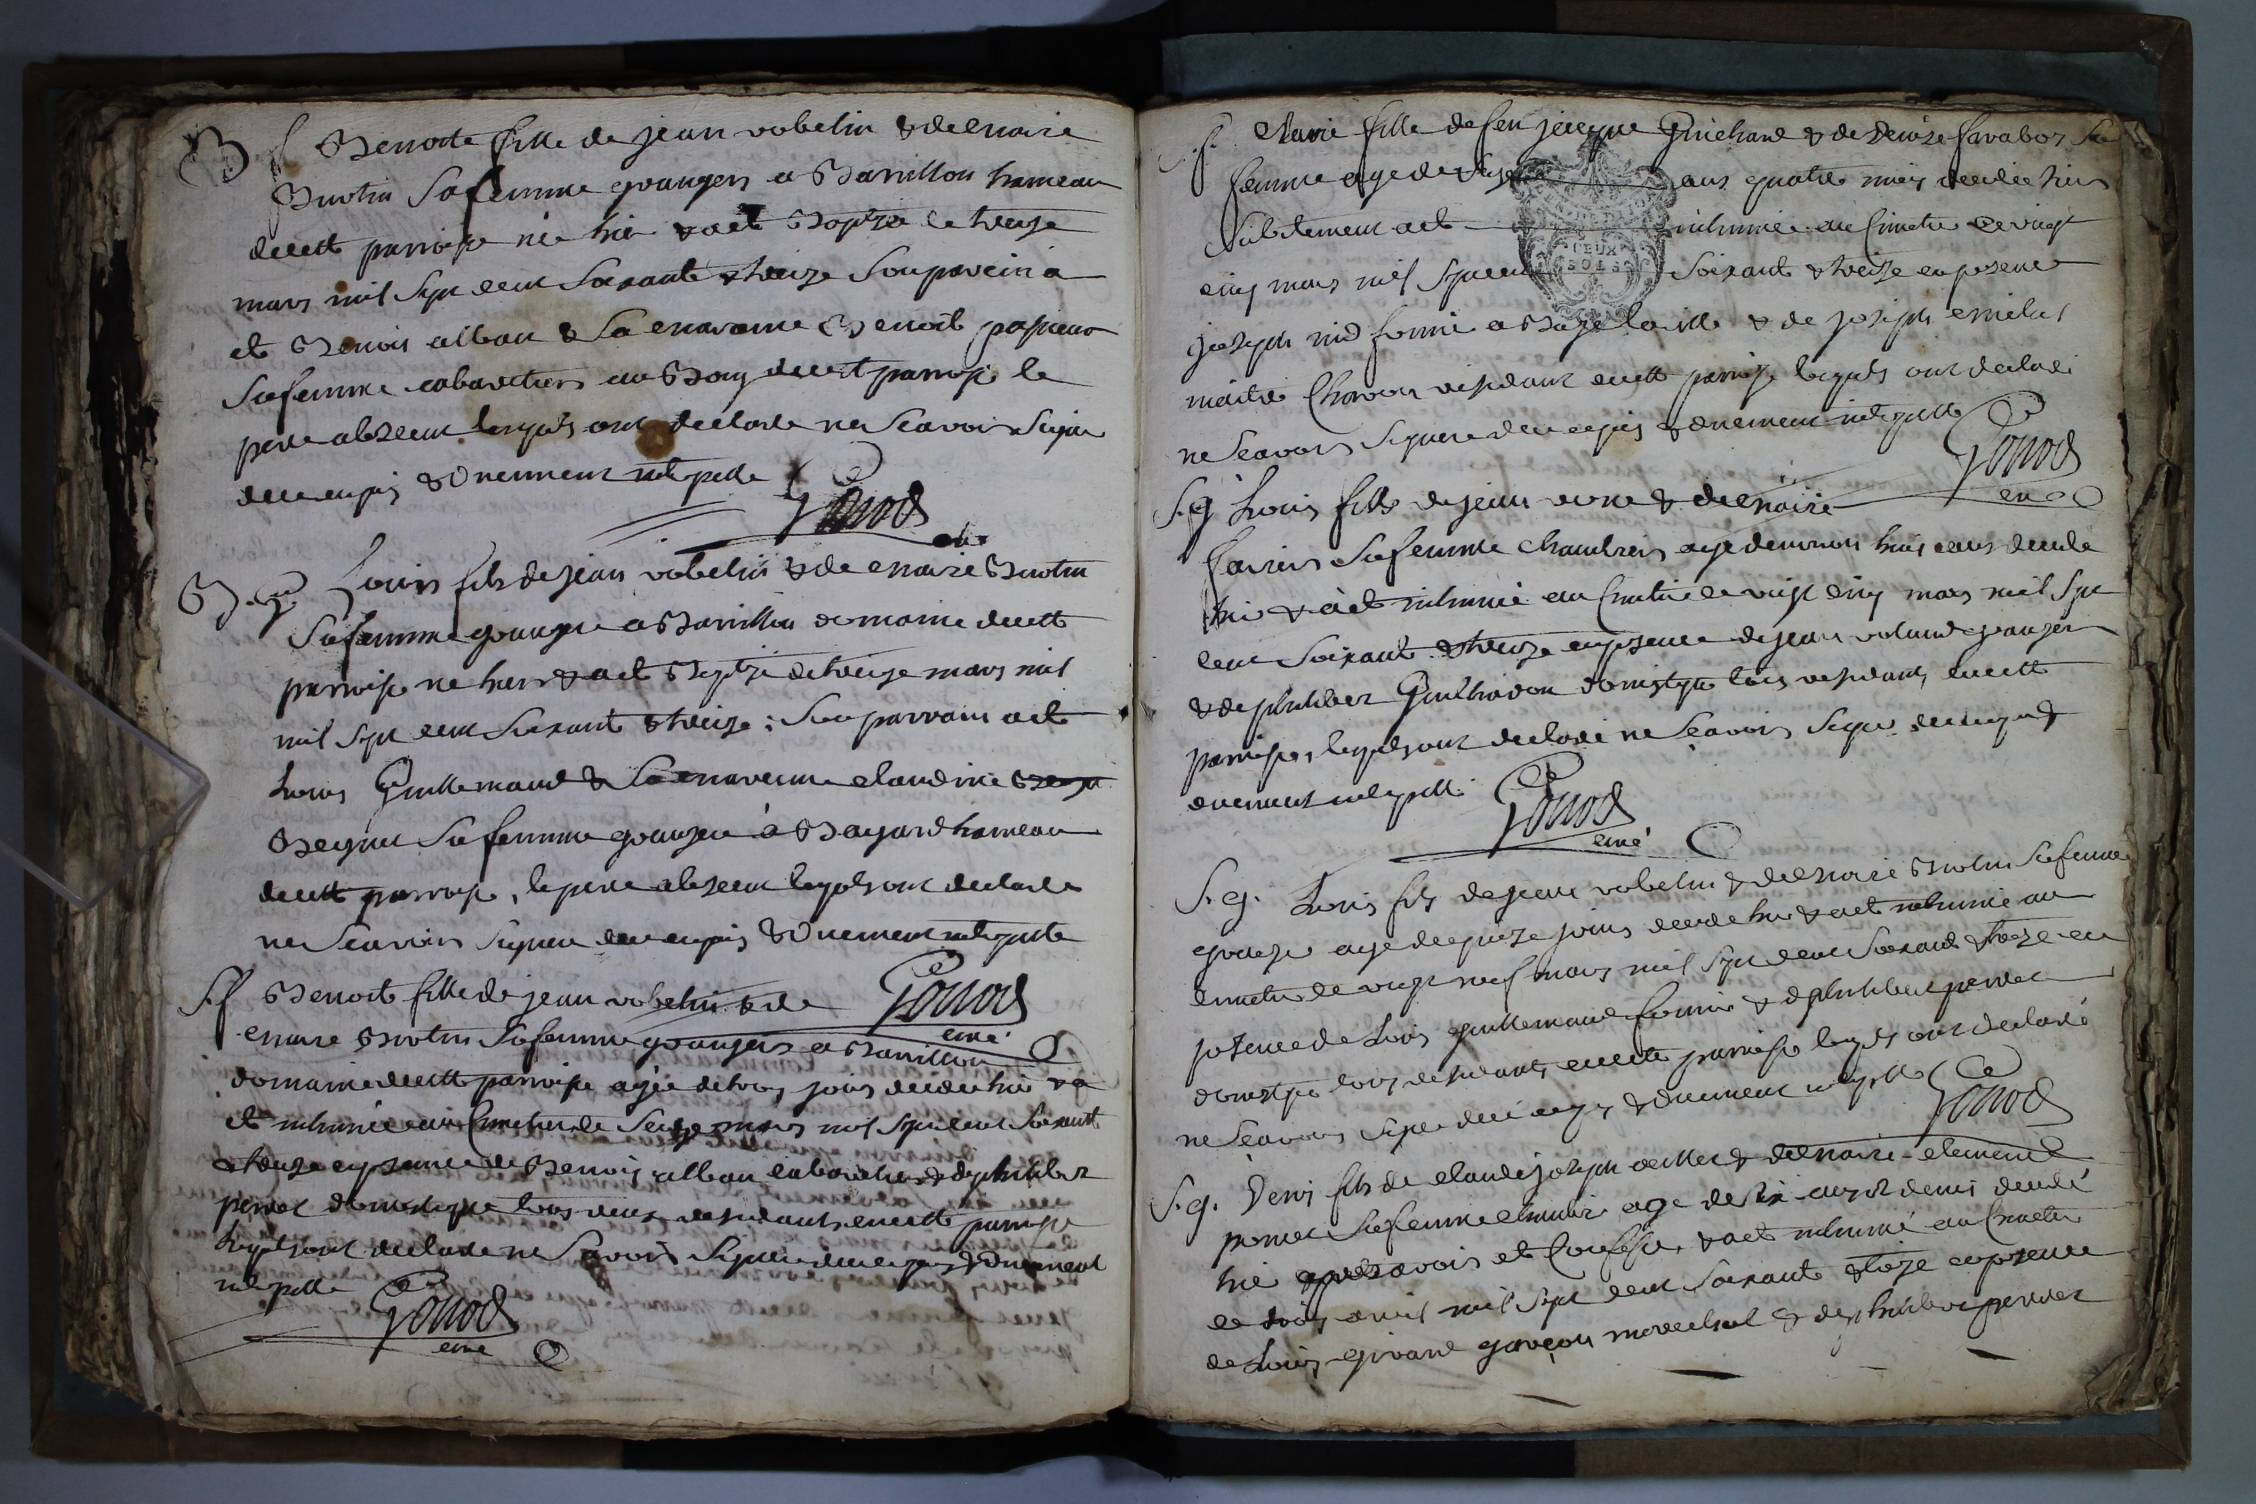 B f Benoite fille de jean vobelin & de marie
Brotin Sa femme grangers a Barvillon hameau
de cette parroisse née hier & a été Baptisé le treize
mars mil sept cent Soixante & treize Son parein a
eté Benoit alban & Sa maraine Benoite
Sa femme cabaretiers au Bourg de cette parroisse le
pere absent lesquels ont declaré ne Scavoir Signer
de ce enquis & Duement interpellé
Gonod
curé
B. g Louis fils de jean vobelin & de marie Brotin
Sa femme granger a Barvillon domaine de cette
parroisse né hier & a été Baptizé le treize mars mil
mil sept cent Soixante & treize : Son parrain a eté
Louis Guillemaud & Sa maraine claudine
Sa femme grangers à Bayard hameau
de cette parroisse, le pere absent lesquels ont declaré
ne Scavoir Signer de ce enquis & Duement interpellé
S.f Benoite fille de jean vobelin & de
Gonod
curé
marie Brotin Sa femme grangers a Barvillon
domaine de cette parroisse agée de trois jours decedée hier & a
eté inhumée au Cimetiere le Seize mars mil Sept cent Soixante
& treize en presence de Benoit alban cabaretier & de philibert
perret domestique tous deux residants en cette parroisse
lesquels ont declaré ne Scavoir Signer de ce enquis & Duement
interpellé
Gonod
curé
S. f. Marie fille de feu jacque Guichard & de Denise favabos Sa
femme agé de ans quatre mois decedée hier
Subitement a eté inhumée au Cimetiere le vingt
cinq mars mil Sept cent Soixante & treize en presence
joseph nid a Bagé la ville & de joseph
maitre residant en cette parroisse lesquels ont declaré
ne Scavoir Signer de ce enquis & duement interpellé
Gonod
curé
S. g Louis fils de jean verne & de marie
Sa femme agé d'environ huit ans decedé
hier & a eté inhumé au Cimetiere le vingt cinq mars mil Sept
cent Soixante & treize en presence de jean voland granger
& de philibert domestique tous residants en cette
parroisse, lesquels ont declaré ne Scavoir Signer de ce enquis &
duement interpellé
Gonod
curé
S. g. Louis fils de jean vobelin & de marie Brotin Sa femme
granger agé de quinze jours decedé hier & a eté inhumé au
cimetiere le vingt neuf mars mil Sept cent Soixante & treize en
presence de Louis guillemaud & de philibert perret
domestique tous residants en cette parroisse lesquels ont declaré
ne Scavoir Signer de ce enquis & duement interpellé
Gonod
S. g. Denis fils de claude joseph & de marie clemence
Sa femme agé de Six ans & demi decedé
hier après avoir eté Confessé, & a eté inhumé au Cimetiere
le trois avril mil Sept cent Soixante & treize en presence
de Louis girard garçon marechal & de philibert perret
DEUX
SOLS